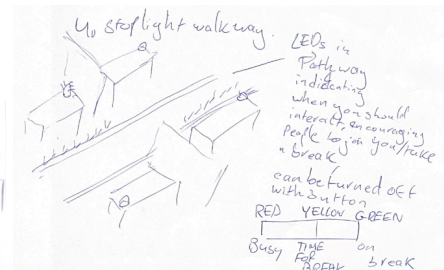 4. stoplight walkway.
LEDs in
Pathway
indicating
when you should
interact, encouraging
people to join you/take
a break
can be turned off
with button
RED YELLOW GREEN
Busy TIME FOR BREAK on break